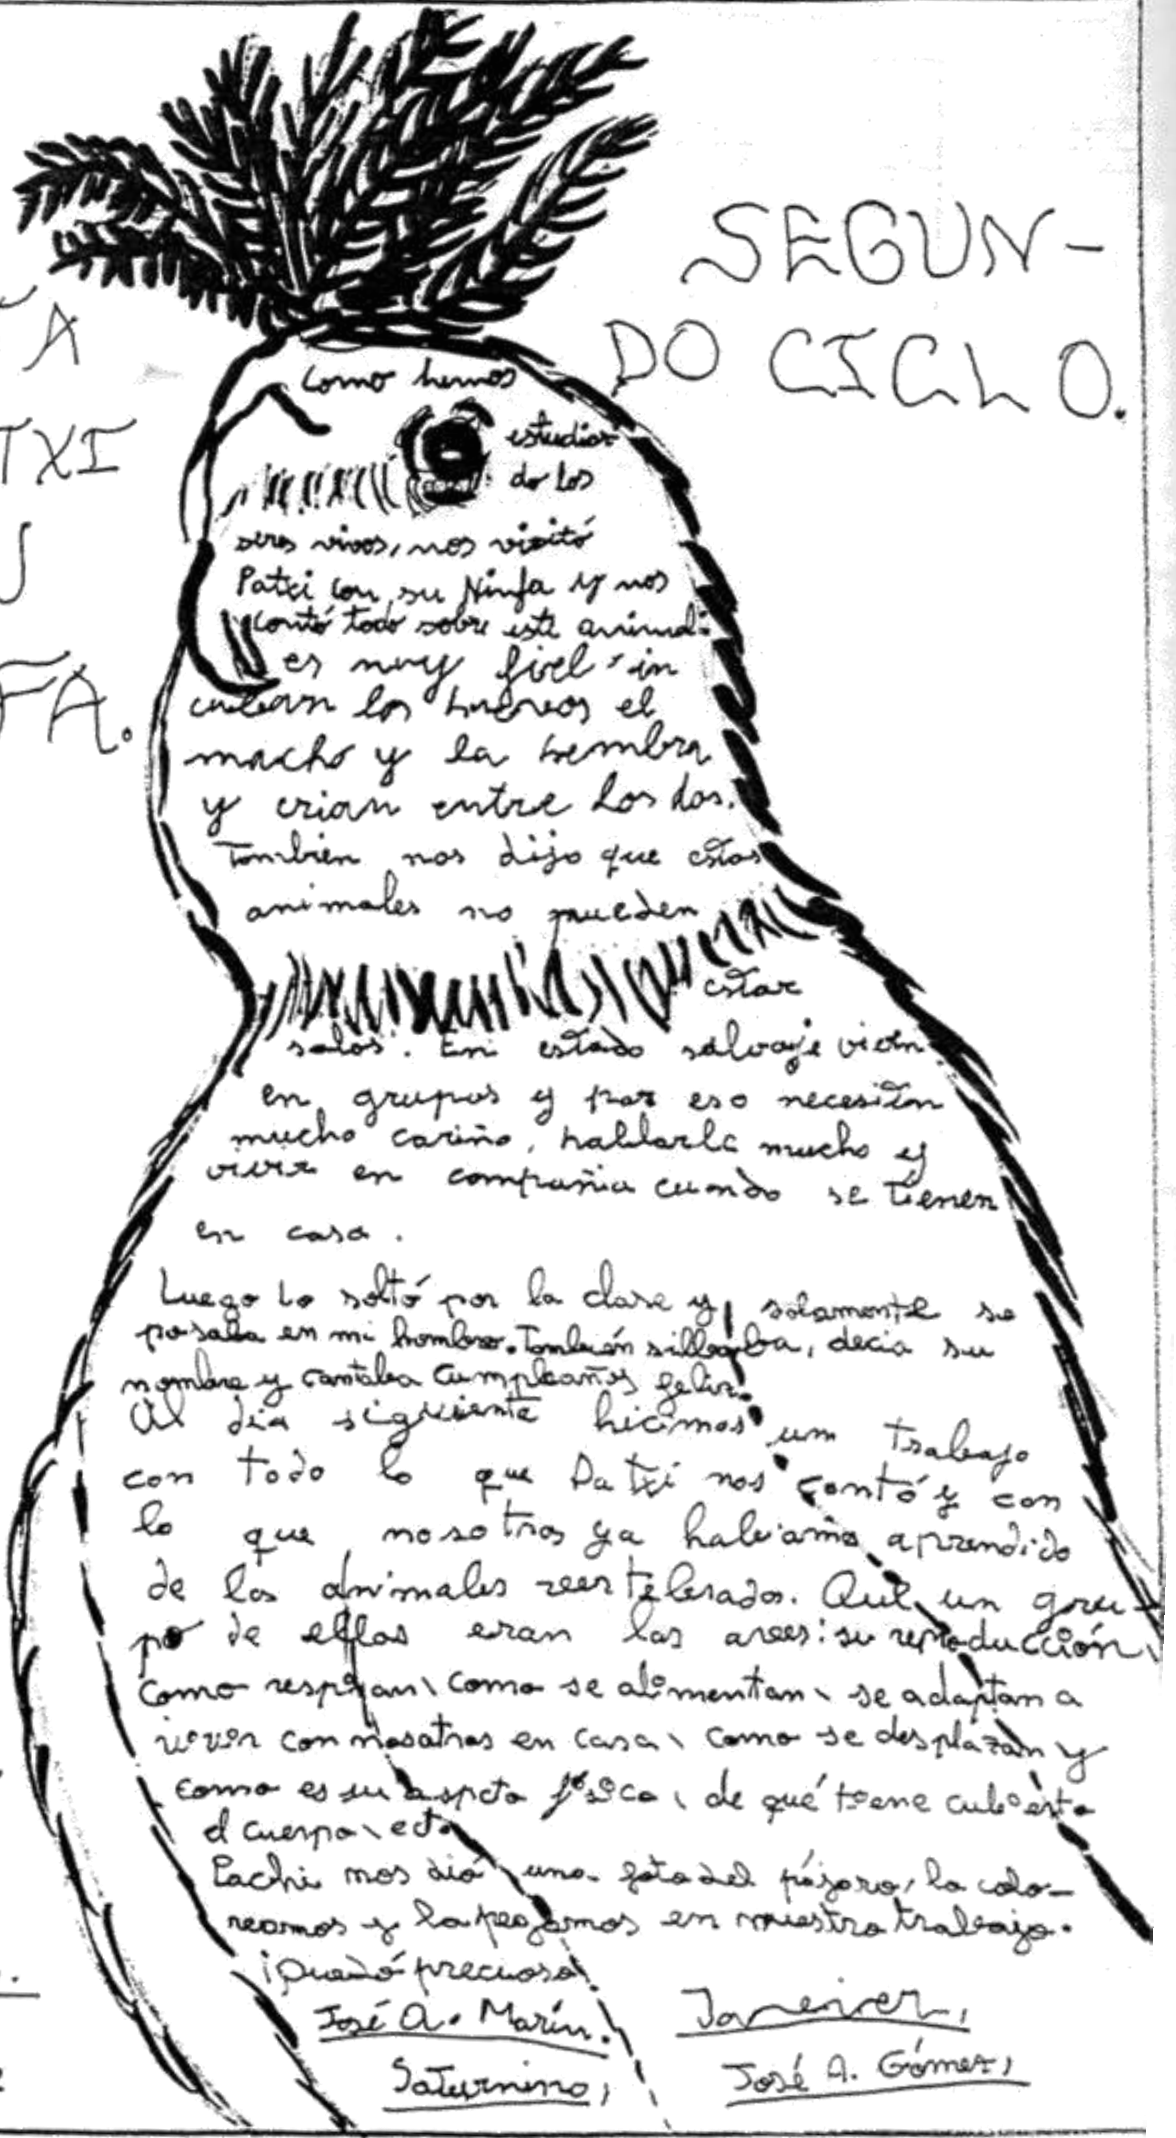 SEGUN-
DO CICLO.
A
TXI
FA.
Como hemos
estudia
do los
seres vivos, nos visitó
Patxi con su Ninfa y nos
contó todo sobre este animal:
es muy fiel, in
cuban los huevos el
macho y la hembra
y crian entre los dos.
Tambien nos dijo que estos
animales no pueden
estar
solos. En estado salvaje viven
en grupos y por eso necesitan
mucho cariño, hablarle mucho y
vivir en compañia cuando se tienen
en casa.
Luego lo soltó por la clase y solamente se
posaba en mi hombro. También silbaba, decia su
nombre y cantaba Cumpleaños feliz.
Al dia siguiente hicimos un trabajo
con todo lo que Patxi nos contó y con
lo que nosotros ya habiamos aprendido
de los animales vertebrados. Que un gru-
po de ellos eran las aves: su reproducción,
como respiran, como se alimentan, se adaptan a
vivir con nosotros en casa, como se desplazan y
como es su aspcto fisico, de qué tiene cubierto
el cuerpo, ect.
Pachi nos dió una foto del pájaro, la colo-
reamos y la pegamos en nuestro trabajo.
¡Quedó precioso!
José A. Marín.
Saturnino,
José A. Gómez,